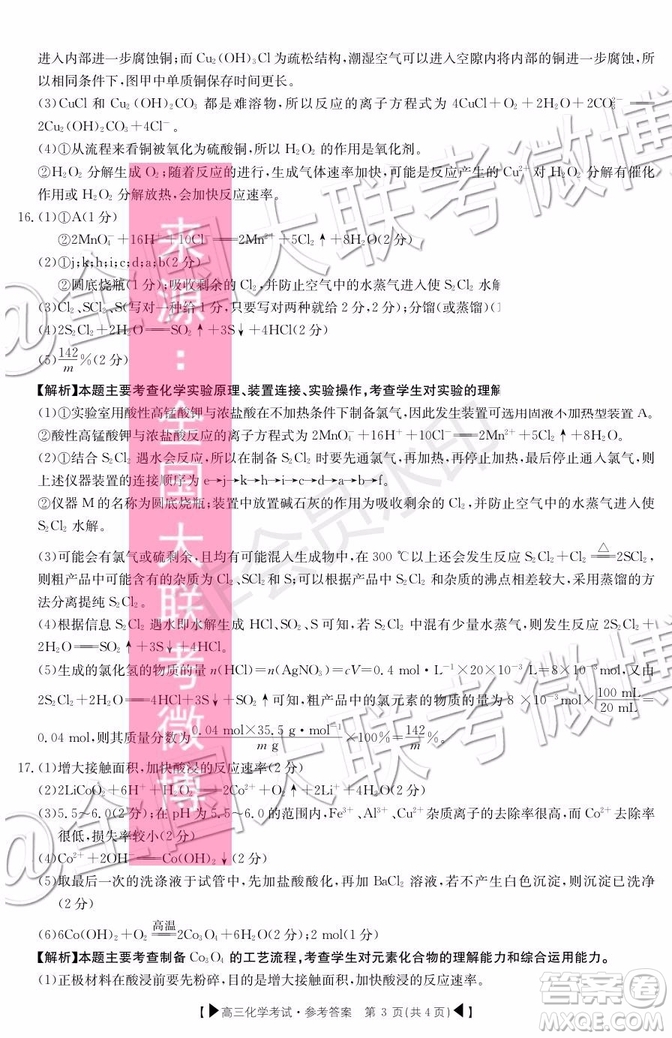 进入内部进一步腐蚀铜;而 Cu₂(OH)₃Cl 为疏松结构,潮湿空气可以进入空隙内将内部的铜进一步腐蚀,所
以相同条件下,图甲中单质铜保存时间更长。
(3)CuCl 和 Cu₂(OH)₂CO₃ 都是难溶物,所以反应的离子方程式为 4CuCl+O₂+2H₂O+2CO₃²⁻══
2Cu₂(OH)₂CO₃+4Cl⁻。
(4)①从流程来看铜被氧化为硫酸铜,所以 H₂O₂ 的作用是氧化剂。
②H₂O₂ 分解生成 O₂;随着反应的进行,生成气体速率加快,可能是反应产生的 Cu²⁺ 对 H₂O₂ 分解有催化
作用或 H₂O₂ 分解放热,会加快反应速率。
16.(1)①A(1 分)
②2MnO₄⁻+16H⁺+10Cl⁻══2Mn²⁺+5Cl₂↑+8H₂O(2 分)
(2)①j;k;h;i;c;d;a;b(2 分)
②圆底烧瓶(1 分);吸收剩余的 Cl₂,并防止空气中的水蒸气进入使 S₂Cl₂ 水解
(3)Cl₂、SCl₂、S(写对一种给 1 分,只要写对两种就给 2 分,2 分);分馏(或蒸馏)(1
(4)2S₂Cl₂+2H₂O══SO₂↑+3S↓+4HCl(2 分)
(5)142/m%(2 分)
【解析】本题主要考查化学实验原理、装置连接、实验操作,考查学生对实验的理解
(1)①实验室用酸性高锰酸钾与浓盐酸在不加热条件下制备氯气,因此发生装置可选用固液不加热型装置 A。
②酸性高锰酸钾与浓盐酸反应的离子方程式为 2MnO₄⁻+16H⁺+10Cl⁻══2Mn²⁺+5Cl₂↑+8H₂O。
(2)①结合 S₂Cl₂ 遇水会反应,所以在制备 S₂Cl₂ 时要先通氯气,再加热,再停止加热,最后停止通入氯气,则
上述仪器装置的连接顺序为 e→j→k→h→i→c→d→a→b→f。
②仪器 M 的名称为圆底烧瓶;装置中放置碱石灰的作用为吸收剩余的 Cl₂,并防止空气中的水蒸气进入使
S₂Cl₂ 水解。
(3)可能会有氯气或硫剩余,且均有可能混入生成物中,在 300 ℃以上时会发生反应 S₂Cl₂+Cl₂══(△)2SCl₂,
则粗产品中可能含有的杂质为 Cl₂、SCl₂ 和 S;可以利用产品与杂质的沸点相差较大,采用蒸馏的方
法分离提纯 S₂Cl₂。
(4)根据信息 S₂Cl₂ 遇水即水解生成 HCl、SO₂、S 可知,若 S₂Cl₂ 中混入水蒸气,可能发生反应 2S₂Cl₂+
2H₂O══SO₂↑+3S↓+4HCl。
(5)生成的氯化氢的物质的量 n(HCl)=n(AgNO₃)=cV=0.4 mol·L⁻¹×20×10⁻³ L=8×10⁻³ mol,又由
2S₂Cl₂+2H₂O══4HCl+3S↓+SO₂↑可知,粗产品中的氯元素的物质的量为 8×10⁻³ mol×100 mL/20 mL=
0.04 mol,则其质量分数为 0.04 mol×35.5 g·mol⁻¹/m g×100%=142/m%。
17.(1)增大接触面积,加快酸浸的反应速率(2 分)
(2)2LiCoO₂+6H⁺+H₂O₂══2Co²⁺+O₂↑+2Li⁺+4H₂O(2 分)
(3)5.5~6.0(2 分);在 pH 为 5.5~6.0 的范围内,Fe³⁺、Al³⁺、Cu²⁺ 杂质离子的去除率很高,而 Co²⁺ 去除率
很低,损失率较小(2 分)
(4)Co²⁺+2OH⁻══Co(OH)₂↓(2 分)
(5)取最后一次的洗涤液于试管中,先加盐酸酸化,再加 BaCl₂ 溶液,若不产生白色沉淀,则沉淀已洗净
(2 分)
(6)6Co(OH)₂+O₂══(高温)2Co₃O₄+6H₂O(2 分);2 mol(1 分)
【解析】本题主要考查制备 Co₃O₄ 的工艺流程,考查学生对元素化合物的理解能力和综合运用能力。
(1)正极材料在酸浸前要先粉碎,目的是增大接触面积,加快酸浸的反应速率。
【▶高三化学考试·参考答案 第 3 页(共 4 页)◀】
来源:全国大联考微博
@全国大联考微博
@全国大联考微博
非会员水印